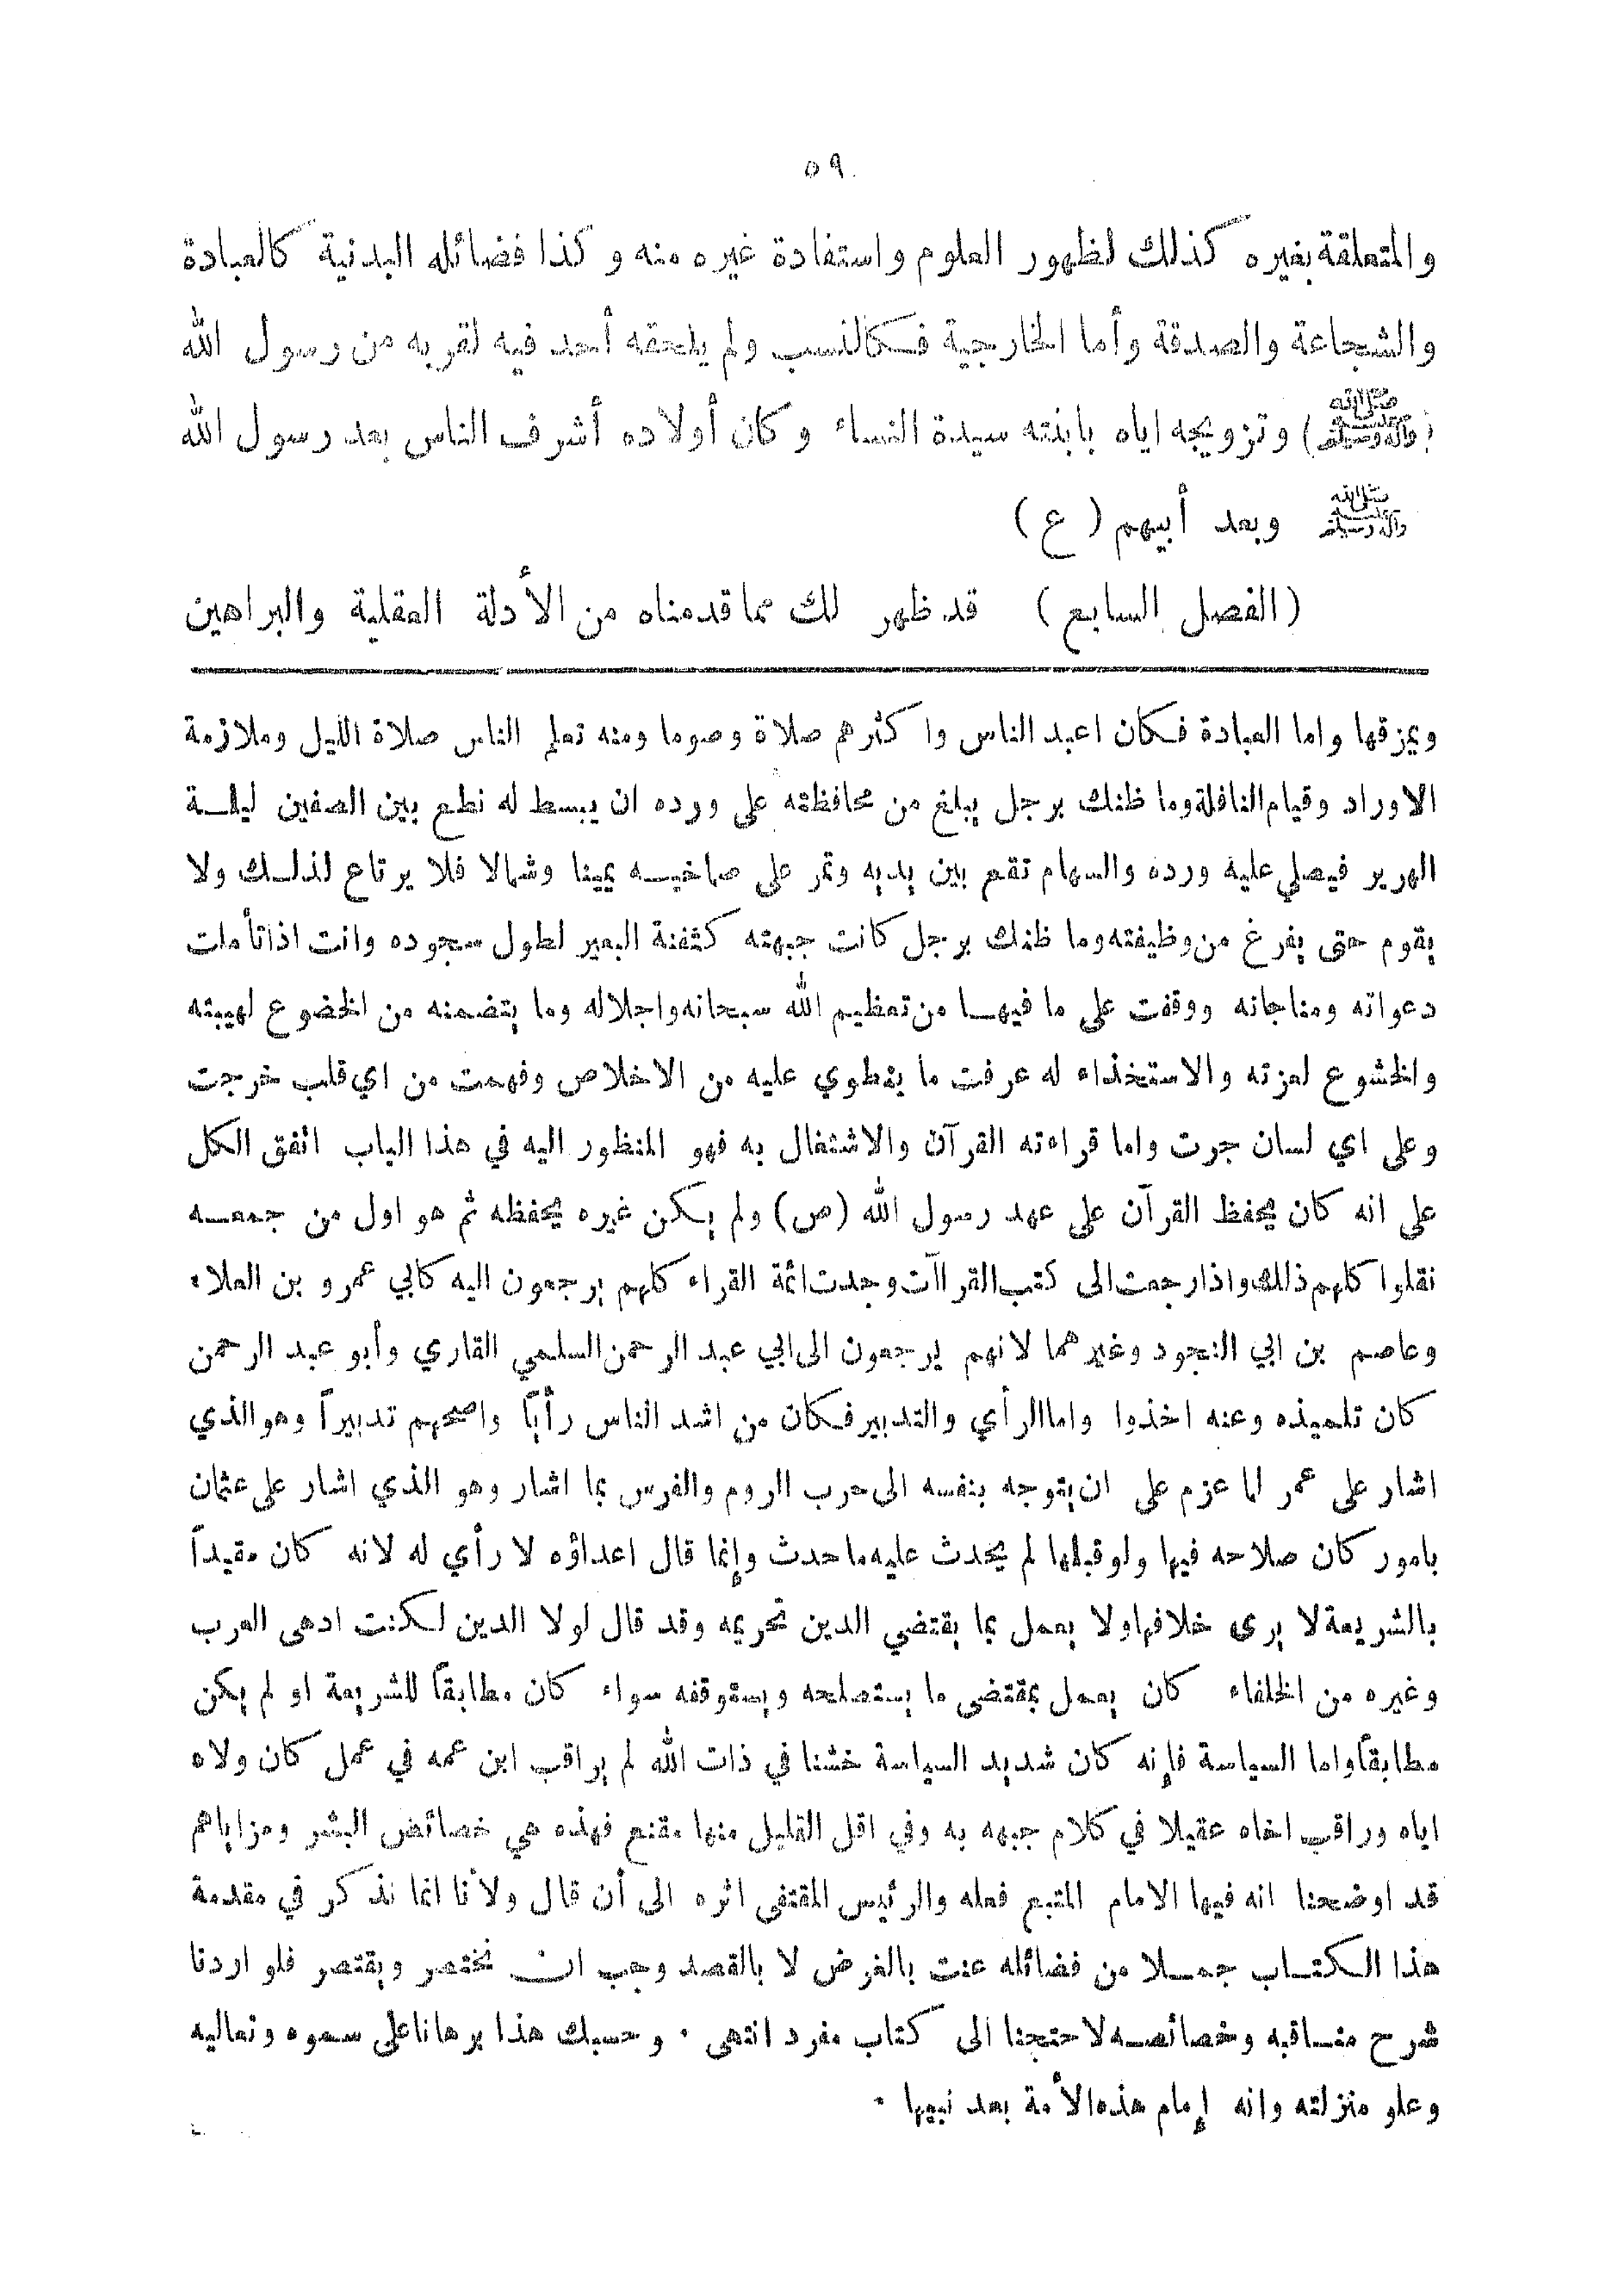 ٥٩
والمتعلقة بغيره كذلك لظهور العلوم واستفادة غيره منه وكذا فضائله البدنية كالعبادة
والشجاعة والصدقة وأما الخارجية فكالنسب ولم يلحقه أحد فيه لقربه من رسول الله
(صلى الله عليه وآله وسلم) وتزويجه اياه بابنته سيدة النساء وكان أولاده أشرف الناس بعد رسول الله
صلى الله عليه وآله وسلم وبعد أبيهم (ع)
(الفصل السابع) قد ظهر لك مما قدمناه من الأدلة العقلية والبراهين
ويمزقها واما العبادة فكان اعبد الناس واكثرهم صلاة وصوما ومنه تعلم الناس صلاة الليل وملازمة
الاوراد وقيام النافلة وما ظنك برجل يبلغ من محافظته على ورده ان يبسط له نطع بين الصفين ليلة
الهرير فيصلي عليه ورده والسهام تقع بين يديه وتمر على صماخيه يمينا وشمالا فلا يرتاع لذلك ولا
يقوم حتى يفرغ من وظيفته وما ظنك برجل كانت جبهته كثفنة البعير لطول سجوده وانت اذا تأملت
دعواته ومناجاته ووقفت على ما فيها من تعظيم الله سبحانه واجلاله وما يتضمنه من الخضوع لهيبته
والخشوع لعزته والاستخذاء له عرفت ما ينطوي عليه من الاخلاص وفهمت من اي قلب خرجت
وعلى اي لسان جرت واما قراءته القرآن والاشتغال به فهو المنظور اليه في هذا الباب اتفق الكل
على انه كان يحفظ القرآن على عهد رسول الله (ص) ولم يكن غيره يحفظه ثم هو اول من جمعه
نقلوا كلهم ذلك واذا رجعت الى كتب القراآت وجدت ائمة القراء كلهم يرجعون اليه كابي عمرو بن العلاء
وعاصم بن ابي النجود وغيرهما لانهم يرجعون الى ابي عبد الرحمن السلمي القاري وأبو عبد الرحمن
كان تلميذه وعنه اخذوا واما الرأي والتدبير فكان من اشد الناس رأياً واصحهم تدبيراً وهو الذي
اشار على عمر لما عزم على ان يتوجه بنفسه الى حرب الروم والفرس بما اشار وهو الذي اشار على عثمان
بامور كان صلاحه فيها ولو قبلها لم يحدث عليه ما حدث وإنما قال اعداؤه لا رأي له لانه كان مقيداً
بالشريعة لا يرى خلافها ولا يعمل بما يقتضي الدين تحريمه وقد قال لولا الدين لكنت ادهى العرب
وغيره من الخلفاء كان يعمل بمقتضى ما يستصلحه ويستوقفه سواء كان مطابقاً للشريعة او لم يكن
مطابقاً واما السياسة فإنه كان شديد السياسة خشنا في ذات الله لم يراقب ابن عمه في عمل كان ولاه
اياه وراقب اخاه عقيلا في كلام جبهه به وفي اقل القليل منها مقنع فهذه هي خصائص البشر ومزاياهم
قد اوضحنا انه فيها الامام المتبع فعله والرئيس المقتفى اثره الى أن قال ولأنا انما نذكر في مقدمة
هذا الكتاب جملا من فضائله عنت بالغرض لا بالقصد وجب ان نختصر ويقتصر فلو اردنا
شرح مناقبه وخصائصه لاحتجنا الى كتاب مفرد انتهى . وحسبك هذا برهانا على سموه وتعاليه
وعلو منزلته وانه إمام هذه الأمة بعد نبيها .